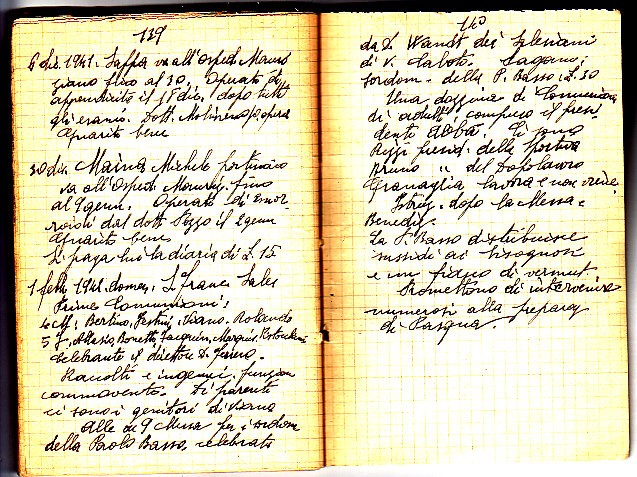 139
6 dic. 1941. Saffa va all'Osped. Mauri
ziano fino al 30. Operato di
appendicite il 15 dic. dopo tutti
gli esami. Dott. Molineris opera
Guarito bene
30 dic. Maina Michele portinaio
va all'Osped. Mauriz. fino
al 9 genn. Operato di Emor
roidi dal dott. Pozzo il 2 genn
Guarito bene
Si paga lui la diaria di £. 15
1 febb. 1942. domen. S. Franc. Sales
Prime Comunioni:
4 M: Bertino, Festini, Viano. Rolando
5 f.
Celebrante il direttore D.
Raccolti e ingenui. funzion
commovente. Di parenti
ci sono i genitori di Viano
Alle ore 9 Messa per i sordom
della Paolo Basso, celebrata
140
da D. Wandt dei Salesiani
di V. Caboto. Pagano i
sordom. della P. Basso: £. 30
Una dozzina di Comunioni
di adulti, compreso il presi
dente d'Oba. Ci sono
Riggi presid. della sportiva
Bruno " del Dopolavoro
Granaglia lavora e non viene
Istruz. dopo la Messa e
Benediz.
La P. Basso distribuisce
sussidi ai bisognosi
e un fiasco di vermut.
Promettono di intervenire
numerosi alla preparaz
di Pasqua.